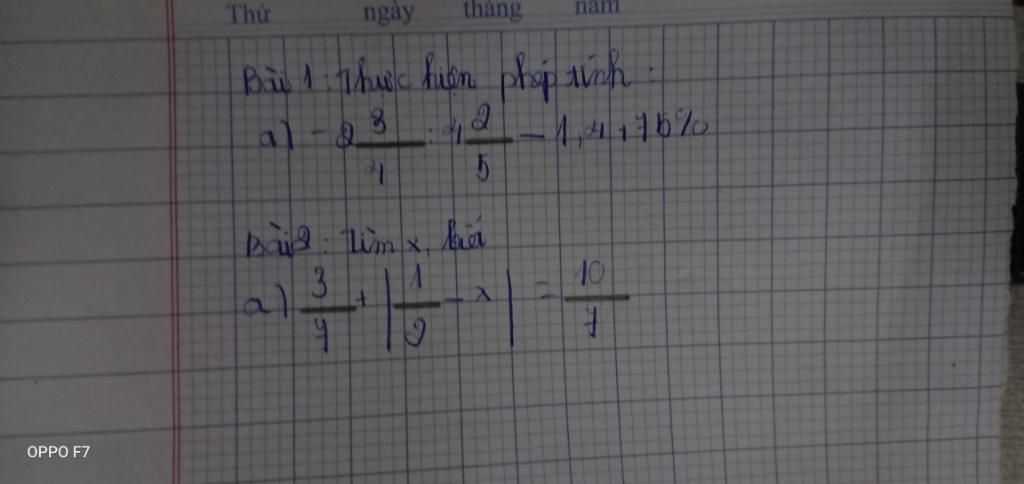 Thứ ngày tháng năm
Bài 1: Thực hiện phép tính:
a) -2 3/4 : 4 2/5 - 1,4 + 75%
Bài 2: Tìm x, biết
a) 3/7 + | 1/2 - x | = 10/7
OPPO F7